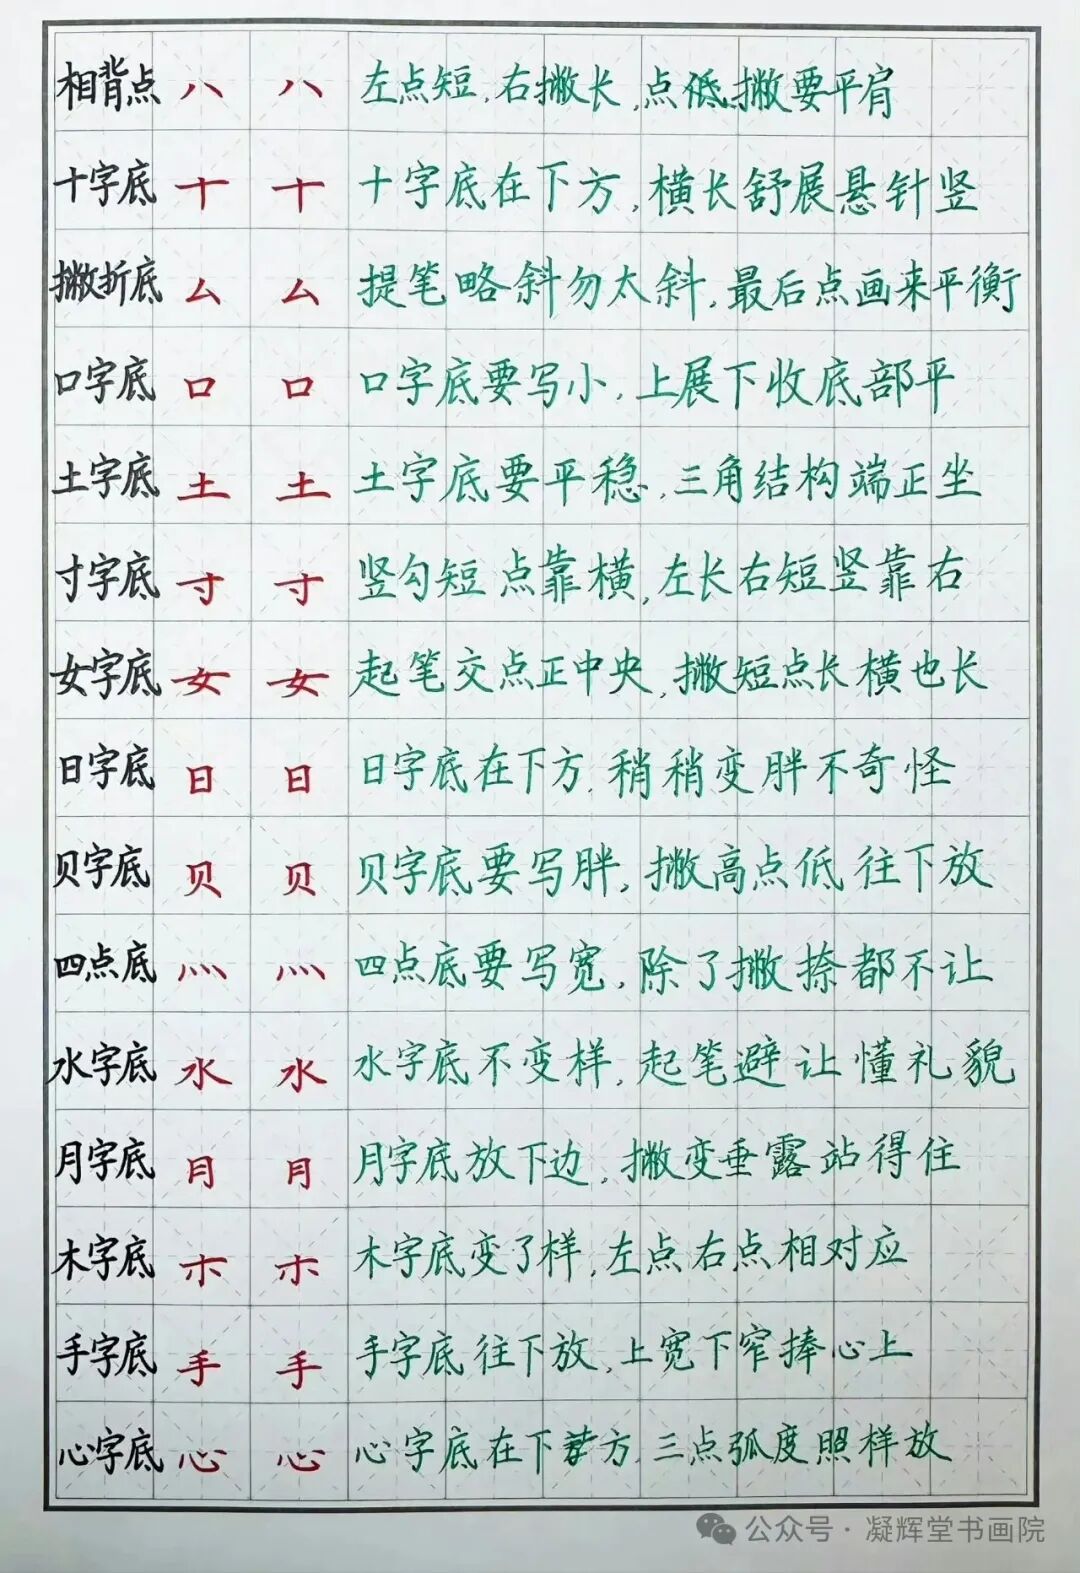 相背点 八 八 左点短,右撇长,点低撇要平肩
十字底 十 十 十字底在下方,横长舒展悬针竖
撇折底 厶 厶 提笔略斜勿太斜,最后点画来平衡
口字底 口 口 口字底要写小,上展下收底部平
土字底 土 土 土字底要平稳,三角结构端正坐
寸字底 寸 寸 竖勾短点靠横,左长右短竖靠右
女字底 女 女 起笔交点正中央,撇短点长横也长
日字底 日 日 日字底在下方,稍稍变胖不奇怪
贝字底 贝 贝 贝字底要写胖,撇高点低往下放
四点底 灬 灬 四点底要写宽,除了撇捺都不让
水字底 水 水 水字底不变样,起笔避让懂礼貌
月字底 月 月 月字底放下边,撇变垂露站得住
木字底 木 木 木字底变了样,左点右点相对应
手字底 手 手 手字底往下放,上宽下窄捧心上
心字底 心 心 心字底在下方,三点弧度照样放
公众号·凝辉堂书画院